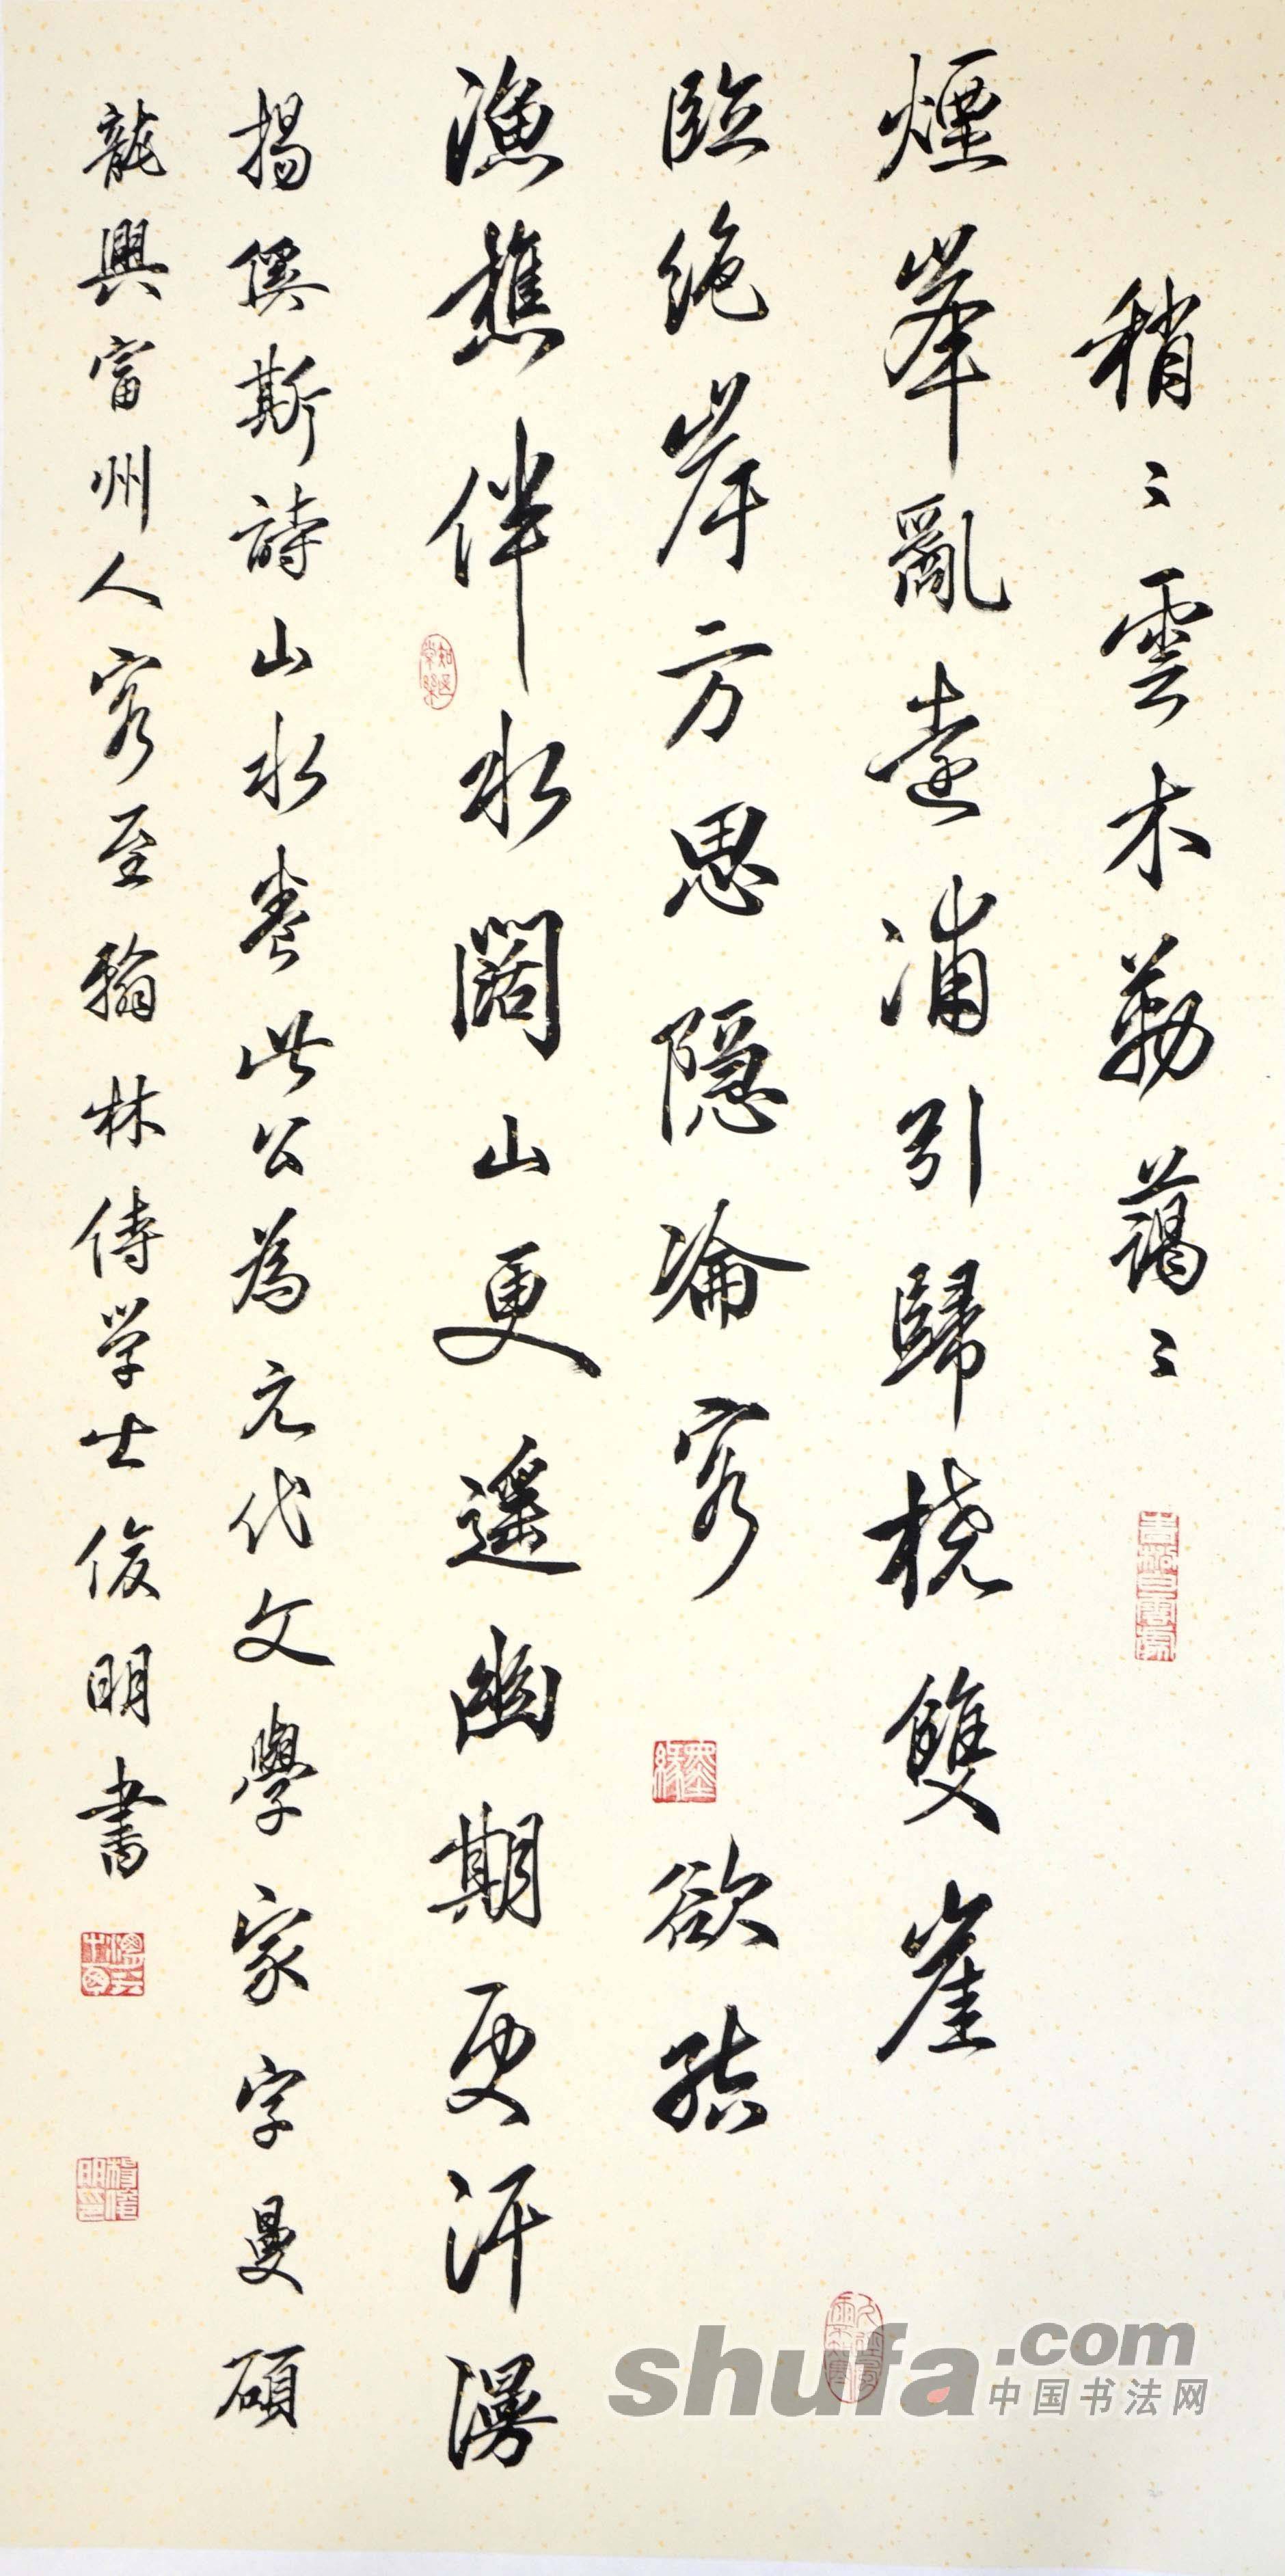 稍〻雲木動藹〻
煙峯亂遠浦引歸橈雙崖
臨絶岸方思隱淪客欲結
漁樵伴水闊山更遥幽期更汗漫
揭傒斯詩山水卷此公為元代文學家字曼碩
龍興富州人官至翰林侍学士俊明書
shufa.com
中国书法网